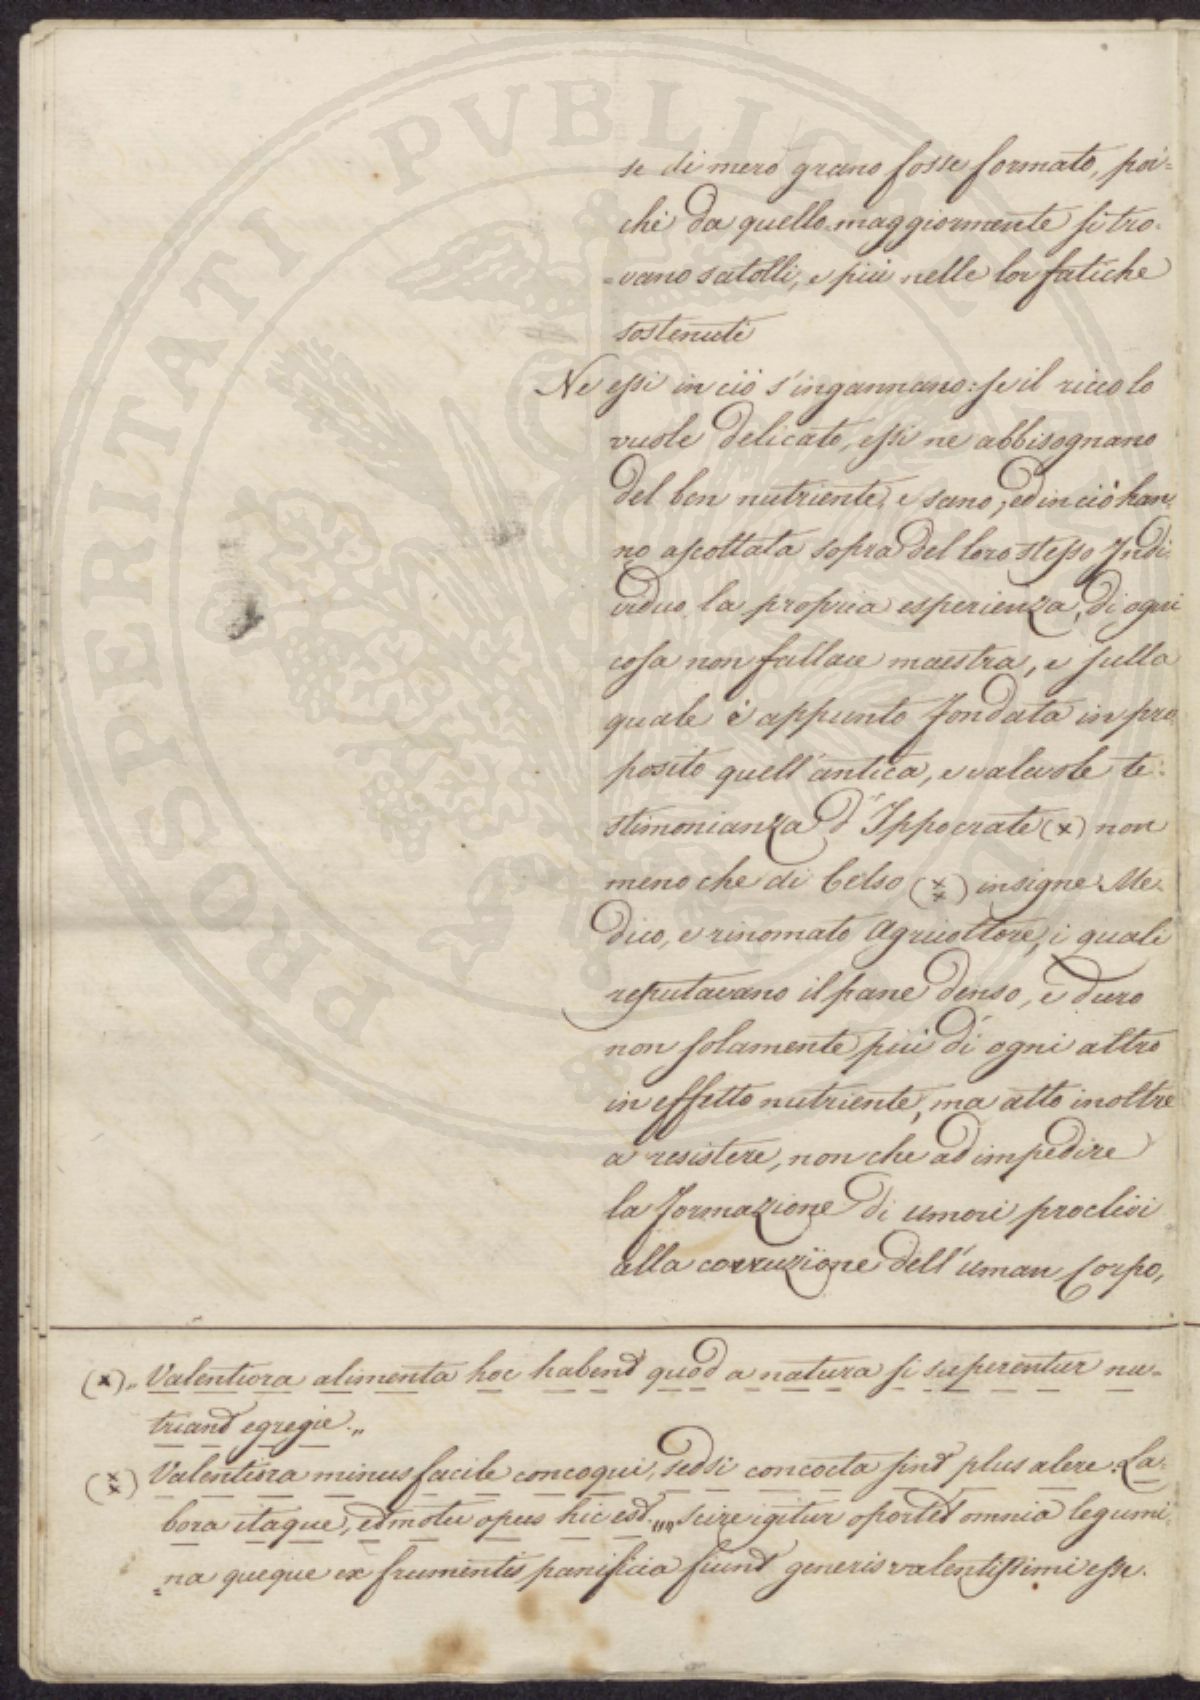 se di mero grano fosse formato, poi=
chè da quello maggiormente si tro=
=vano satolli, e più nelle lor fatiche
sostenuti
Ne essi in ciò s'ingannano: se il ricco lo
vuole delicato, essi ne abbisognano
del ben nutriente, e sano; ed in ciò han=
no ascoltata sopra del loro stesso Indi=
viduo la propria esperienza, di ogni
cosa non fallace maestra, e sulla
quale è appunto fondata in pro
posito quell'antica, e valevole te=
stimonianza d'Ippocrate (x) non
meno che di Celso (x x) insigne Me=
dico, e rinomato Agricoltore, i quali
reputavano il pane denso, e duro
non solamente più di ogni altro
in effetto nutriente, ma atto inoltre
a resistere, non che ad impedire
la formazione di umori proclivi
alla corruzione dell'uman corpo,
(x) „ Valentiora alimenta hoc habent quod a natura si superentur nu=
triant egregie. „
(x x) Valentiora minus facile concoqui, sed si concocta sint plus alere. La=
bora itaque, et motu opus hic est. „„ Scire igitur oportet omnia legumi=
=na queque ex frumentis panificia fiunt generis valentissimi esse.
PROSPERITATI PUBLICAE